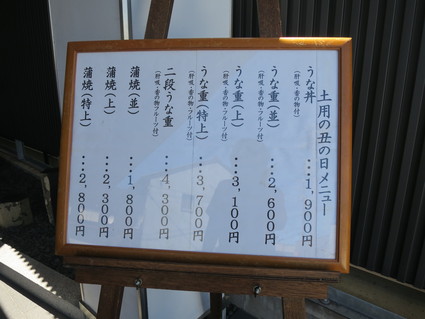 土用の丑の日メニュー
うな丼 ・・・1,900円
(肝吸・香の物付)
うな重(並) ・・・2,600円
(肝吸・香の物付)
うな重(上) ・・・3,100円
(肝吸・香の物・フルーツ付)
うな重(特上) ・・・3,700円
(肝吸・香の物・フルーツ付)
二段うな重 ・・・4,300円
(肝吸・香の物・フルーツ付)
蒲焼(並) ・・・1,800円
蒲焼(上) ・・・2,300円
蒲焼(特上) ・・・2,800円